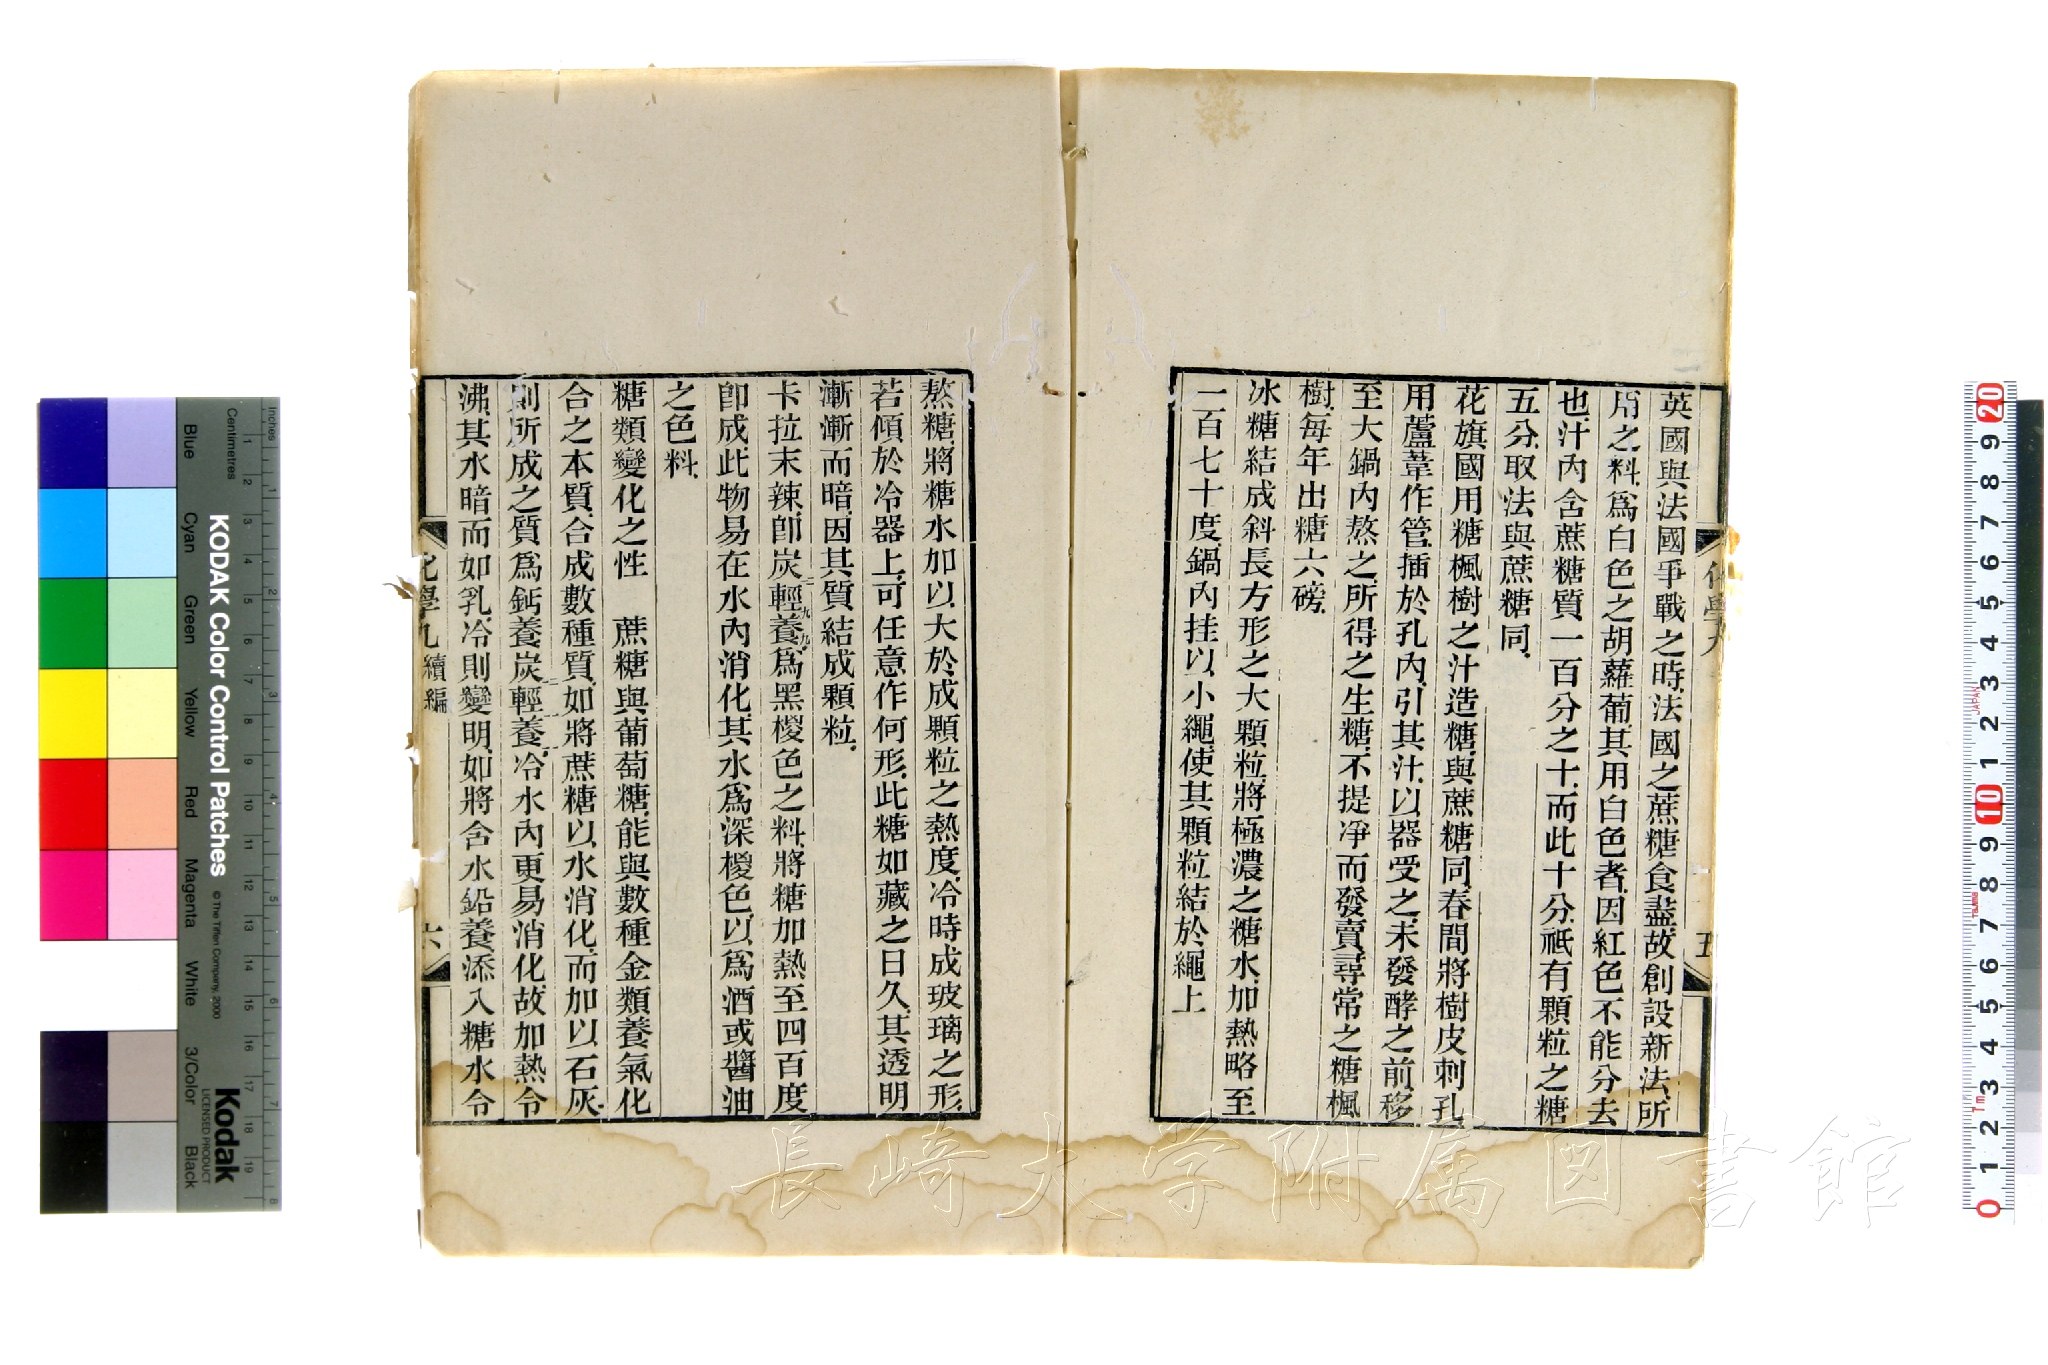 英國與法國爭戰之時法國之蔗糖食盡故創設新法所
用之料為白色之胡蘿蔔其用白色者因紅色不能分去
也汁內含蔗糖質一百分之十而此十分祗有顆粒之糖
五分取法與蔗糖同
花旗國用糖楓樹之汁造糖與蔗糖同春間將樹皮刺孔
用蘆葦作管插於孔內引其汁以器受之未發酵之前移
至大鍋內熬之所得之生糖不提凈而發賣尋常之糖楓
樹每年出糖六磅
冰糖結成斜長方形之大顆粒將極濃之糖水加熱略至
一百七十度鍋內挂以小繩使其顆粒結於繩上
化學九
五
熬糖將糖水加以大於成顆粒之熱度冷時成玻璃之形
若傾於冷器上可任意作何形此糖如藏之日久其透明
漸漸而暗因其質結成顆粒
卡拉末辣卽炭輕養為黑椶色之料將糖加熱至四百度
卽成此物易在水內消化其水為深椶色以為酒或醬油
之色料
糖類變化之性 蔗糖與葡萄糖能與數種金類養氣化
合之本質合成數種質如將蔗糖以水消化而加以石灰
則所成之質為鈣養炭輕養冷水內更易消化故加熱令
沸其水暗而如乳冷則變明如將含水鉛養添入糖水令
化學九 續編
六
長崎大学附属図書館
KODAK Color Control Patches
© The Tiffen Company, 2000
Kodak
LICENSED PRODUCT
Inches
Centimetres
Blue
Cyan
Green
Yellow
Red
Magenta
White
3/Color
Black
1 2 3 4 5 6 7 8
1 2 3 4 5 6 7 8 9 10 11 12 13 14 15 16 17 18 19
20 9 8 7 6 5 4 3 2 1 10 9 8 7 6 5 4 3 2 1 0
JAPAN
1m